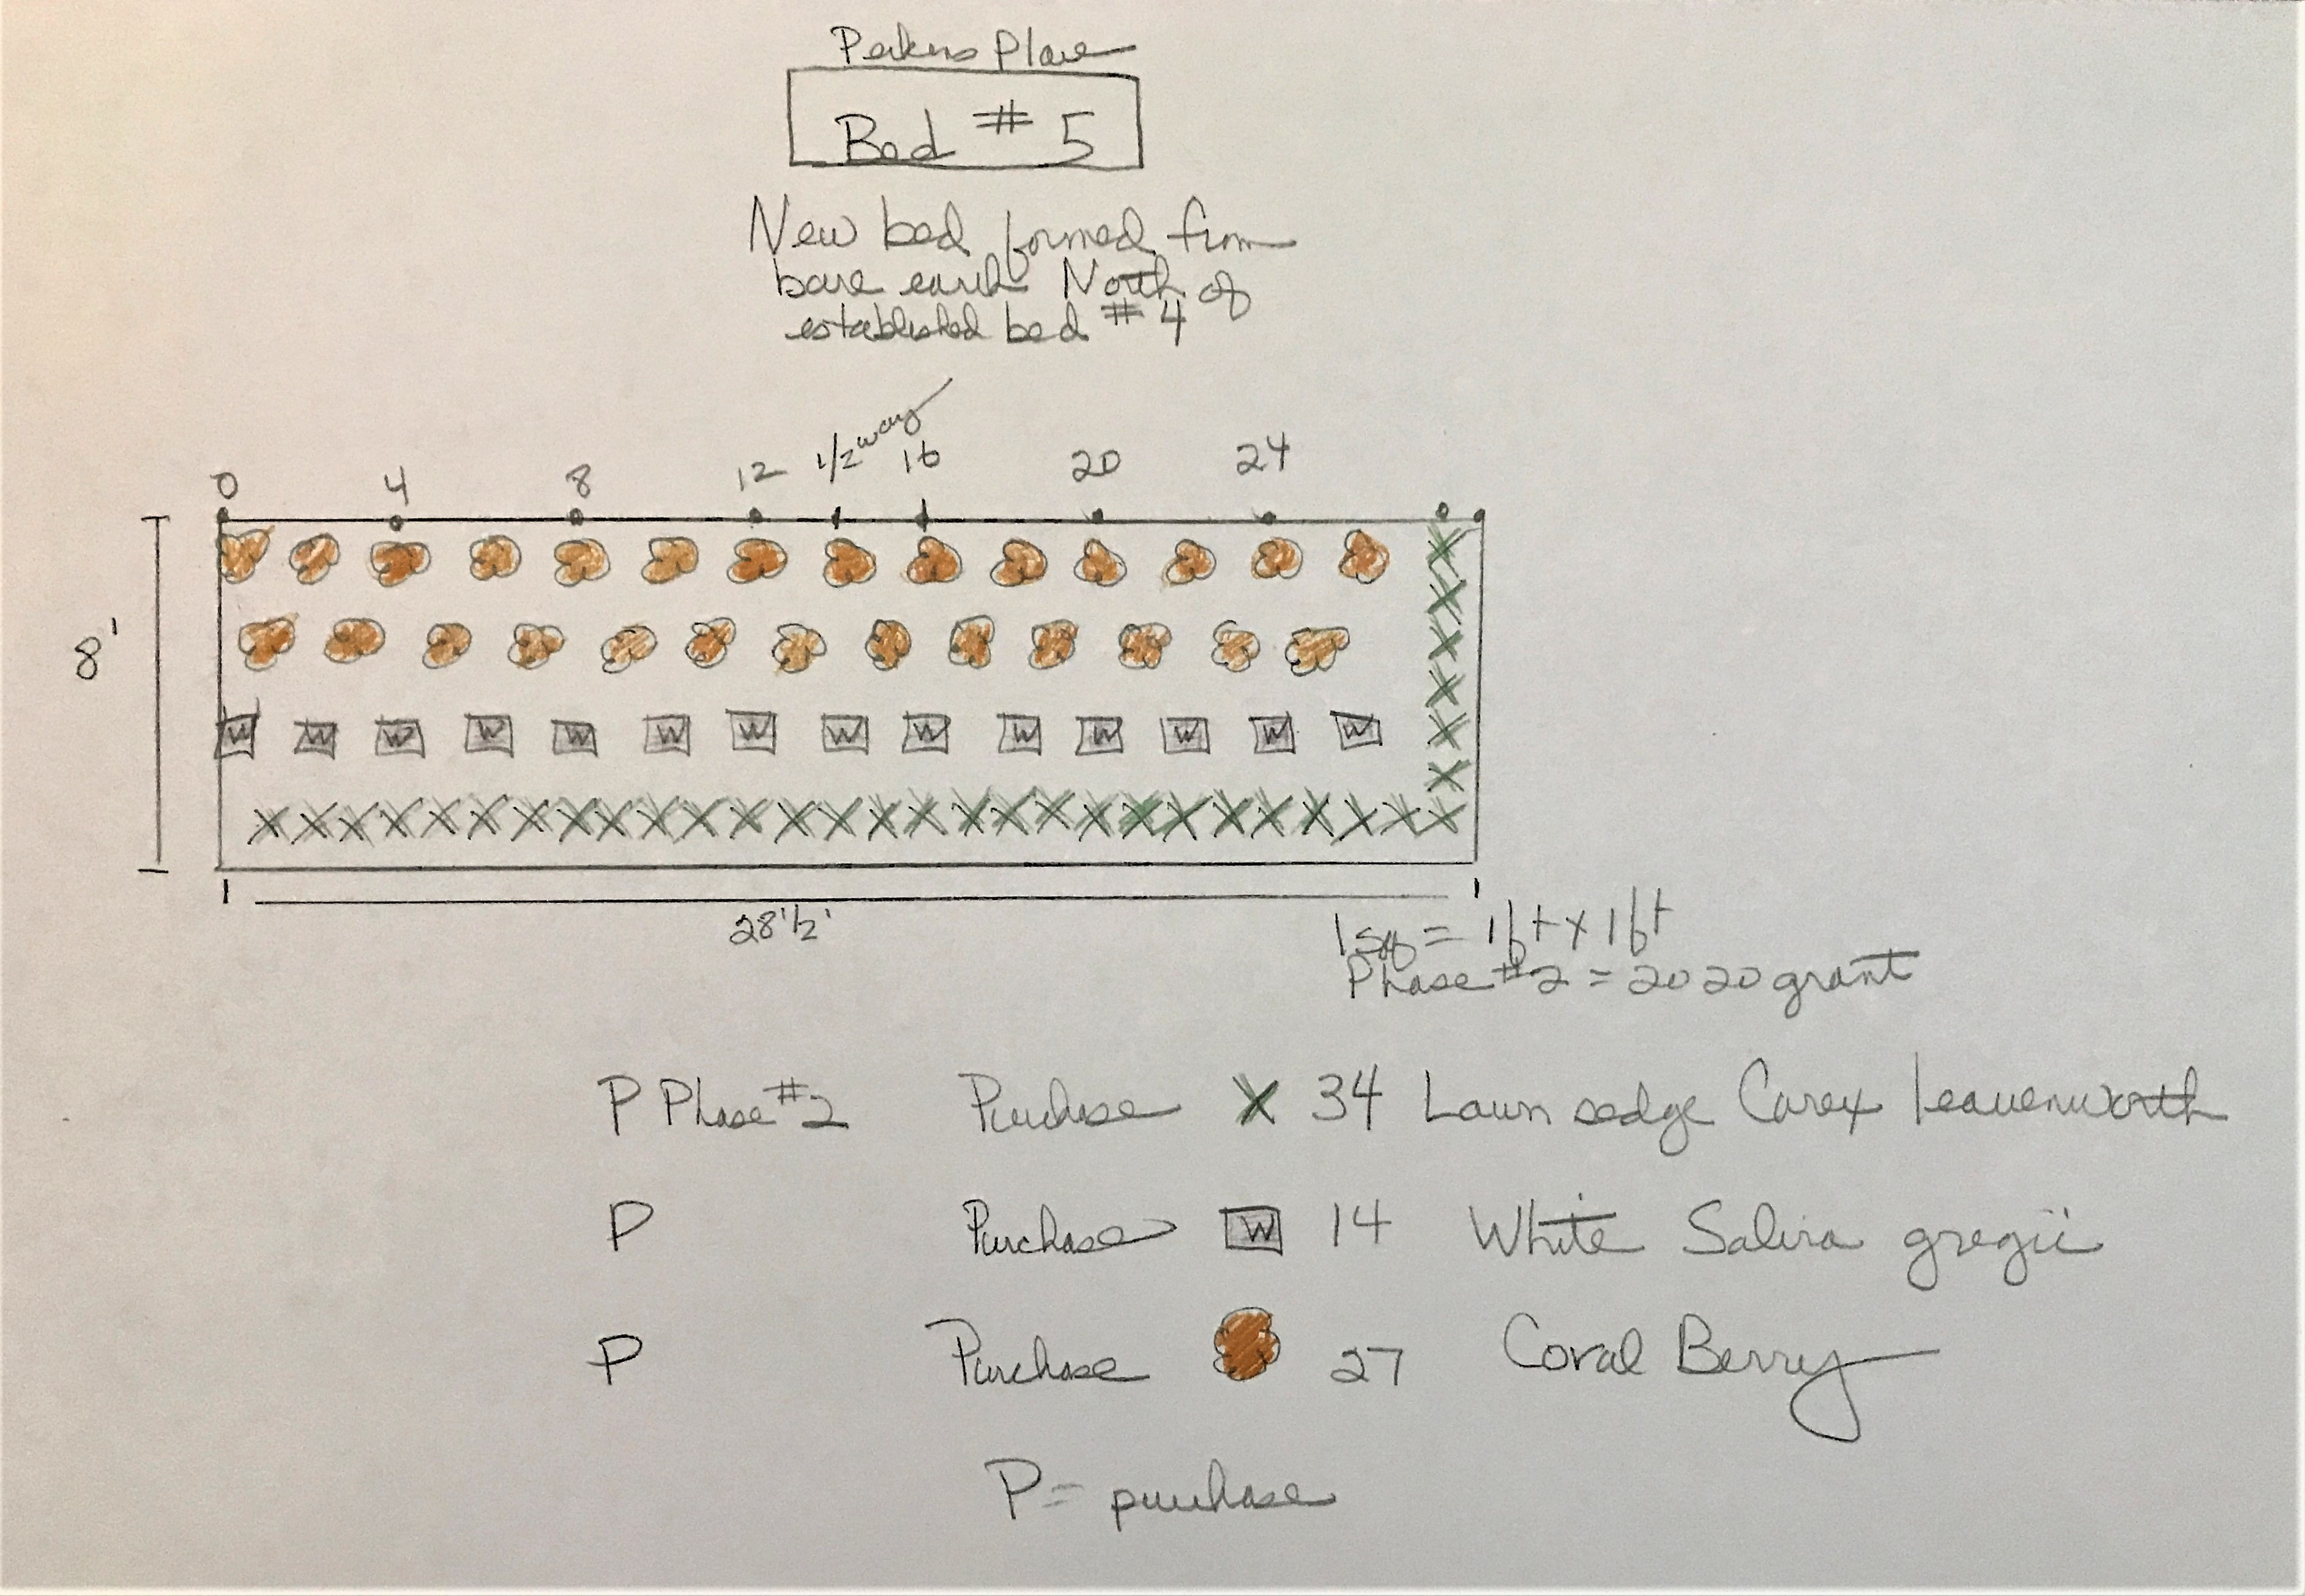 Perkins Place
Bed # 5
New bed formed from
bare earth North of
established bed # 4
0 4 8 12 1/2 way 16 20 24
8'
W W W W W W W W W W W W W W
28'1/2'
1 sq = 1ft x 1ft
Phase #2 = 2020 grant
P Phase #2 Purchase X 34 Lawn sedge Carex leavenworth
P Purchase W 14 White Salvia gregii
P Purchase 27 Coral Berry
P = purchase